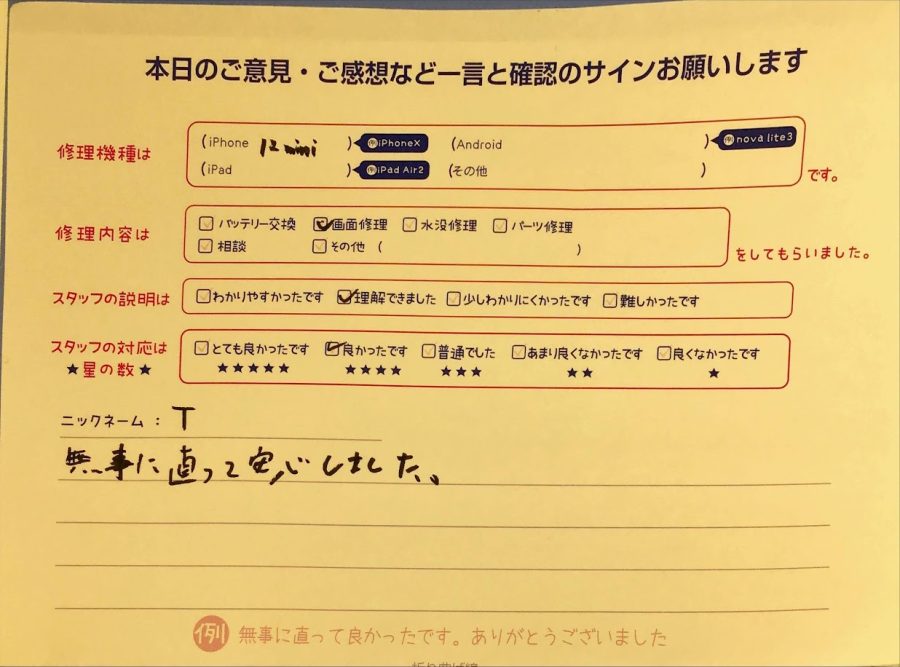 本日のご意見・ご感想など一言と確認のサインお願いします
修理機種は
(iPhone 12 mini ) 例 iPhoneX (Android ) 例 nova lite3
(iPad ) 例 iPad Air2 (その他 )
です。
修理内容は
バッテリー交換 画面修理 水没修理 パーツ修理
相談 その他 ( )
をしてもらいました。
スタッフの説明は わかりやすかったです 理解できました 少しわかりにくかったです 難しかったです
スタッフの対応は とても良かったです 良かったです 普通でした あまり良くなかったです 良くなかったです
★星の数★ ★★★★★ ★★★★ ★★★ ★★ ★
ニックネーム : T
無事に直って安心しました。
例 無事に直って良かったです。ありがとうございました